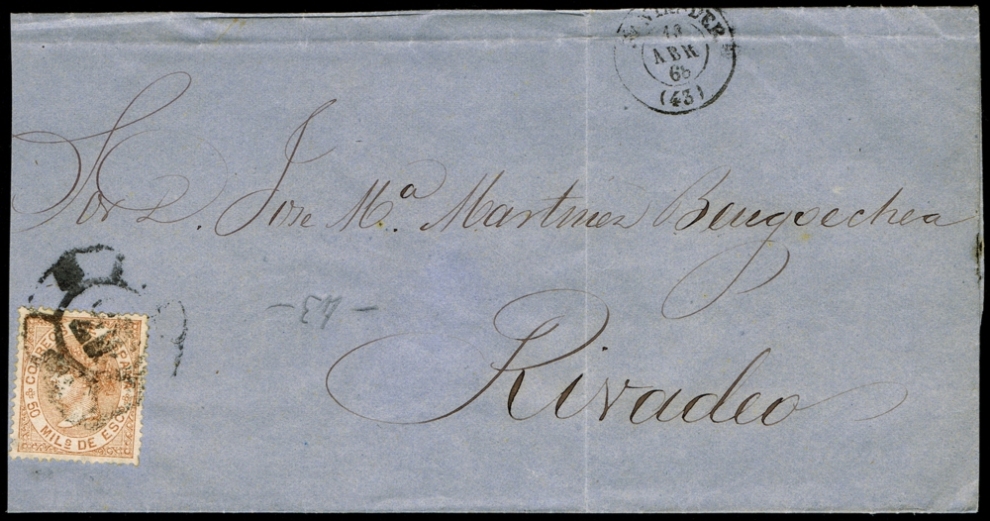 SANTANDER
13
ABR
68
(43)
Sor D. Jose Mª. Martinez Bengoechea
- 43 -
Rivadeo
CORREOS ESPAÑA
50 MILS DE ESCU